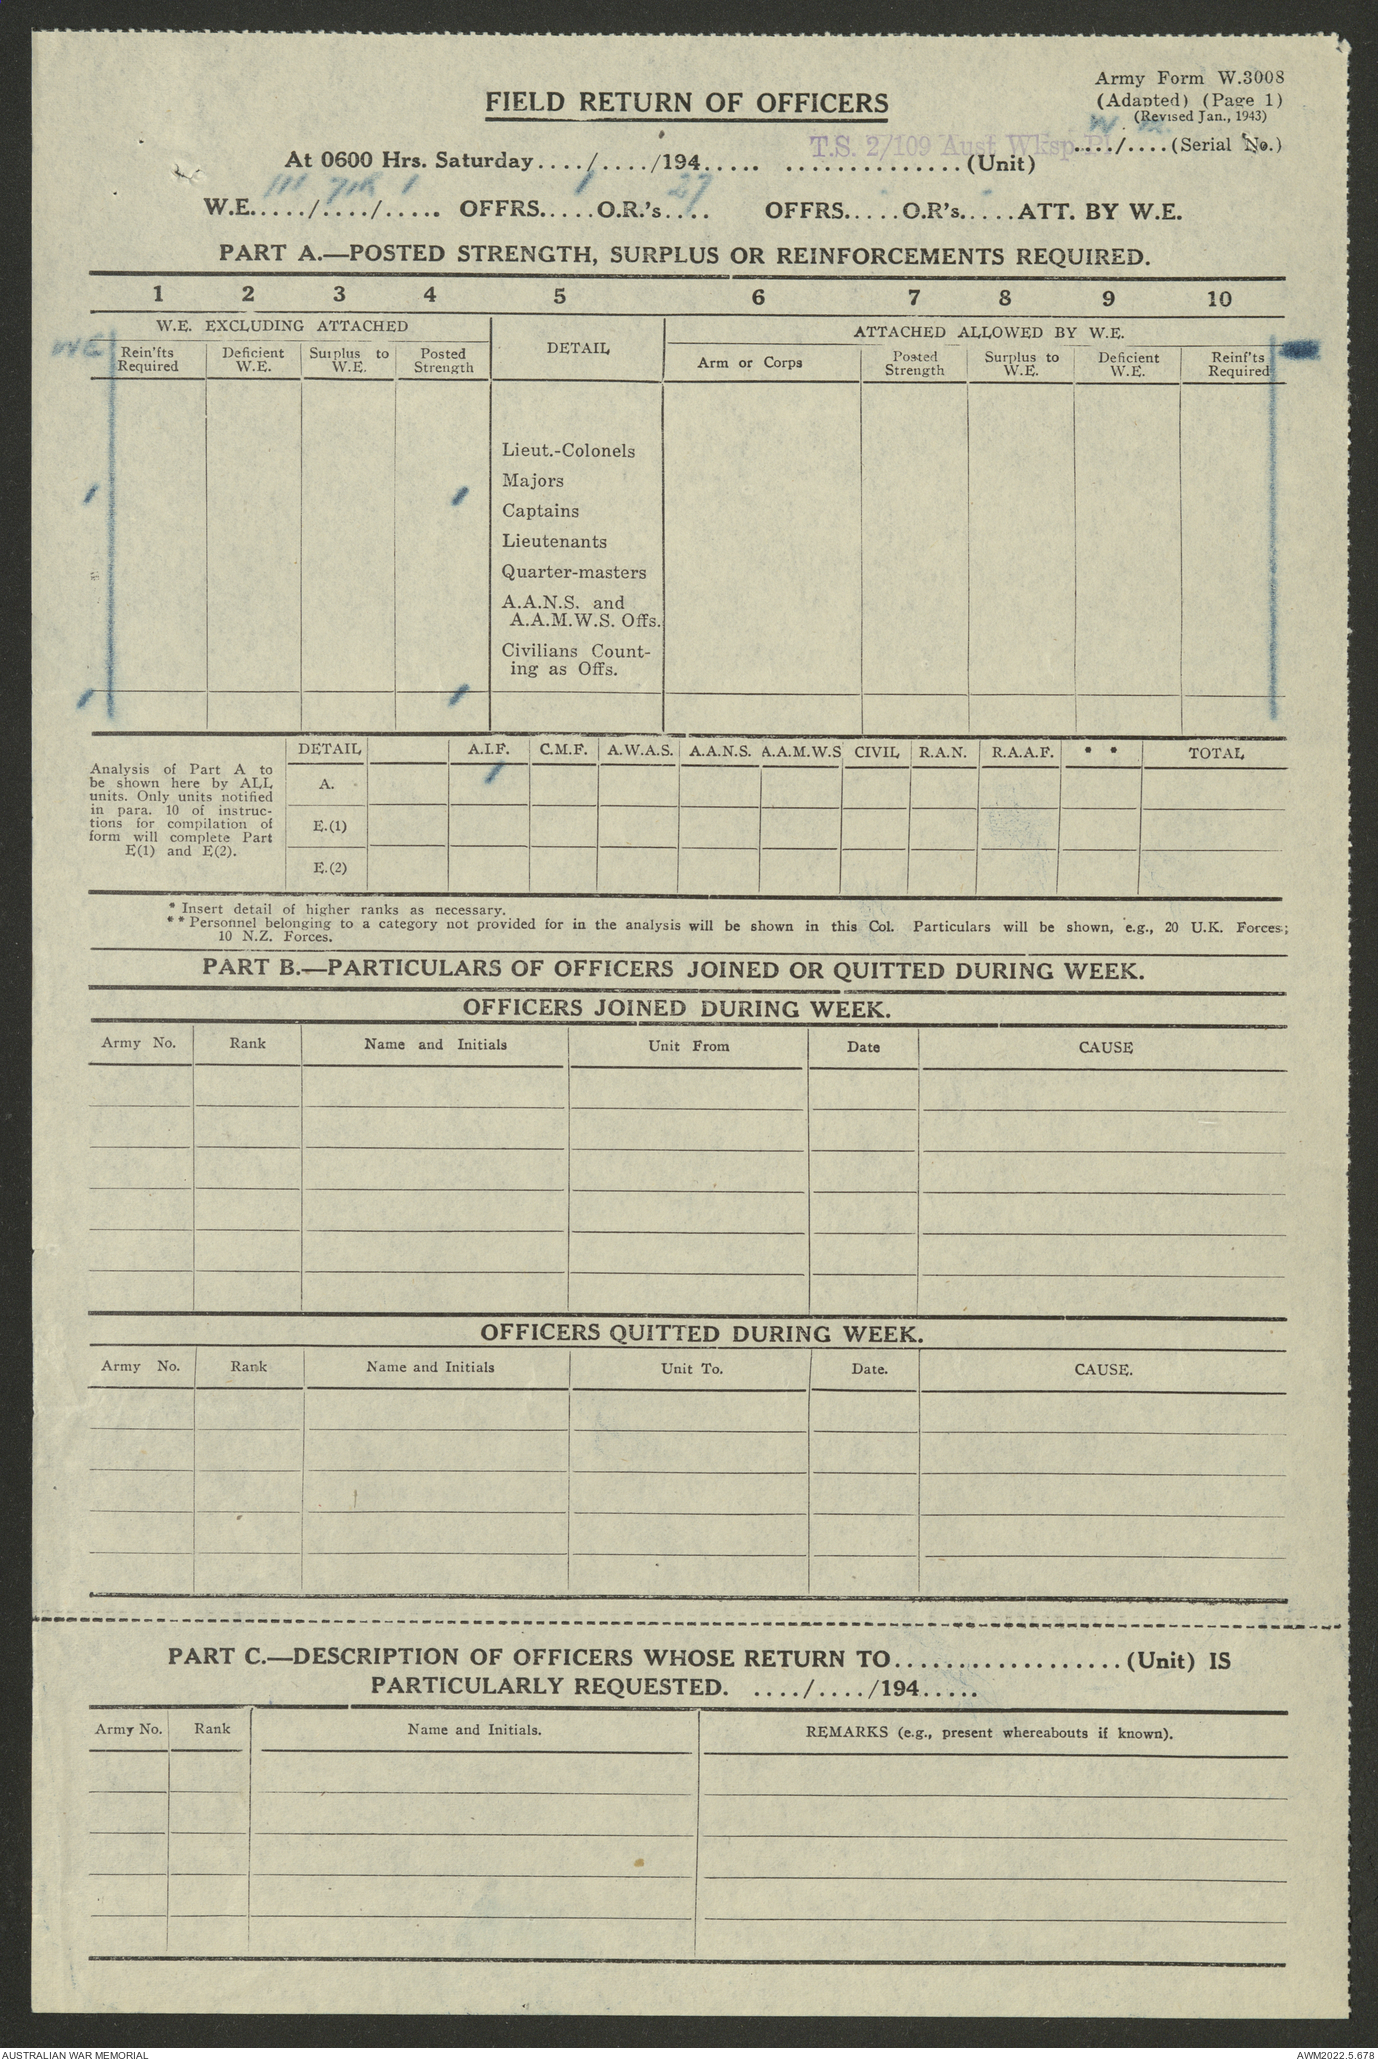 Army Form W.3008
FIELD RETURN OF OFFICERS
(Adapted) (Page 1)
(Revised Jan., 1943)
T.S. 2/109 Aust Wksp Pl
..../....(Serial No.)
At 0600 Hrs. Saturday..../..../194..... ...............(Unit)
111 1 1 27
W.E...../..../..... OFFRS.....O.R.'s.... OFFRS.....O.R's.....ATT. BY W.E.
PART A.—POSTED STRENGTH, SURPLUS OR REINFORCEMENTS REQUIRED.
1 2 3 4 5 6 7 8 9 10
W.E. EXCLUDING ATTACHED DETAIL ATTACHED ALLOWED BY W.E.
WE Rein'fts Required Deficient W.E. Surplus to W.E. Posted Strength Arm or Corps Posted Strength Surplus to W.E. Deficient W.E. Reinf'ts Required
Lieut.-Colonels
Majors
1 1
Captains
Lieutenants
Quarter-masters
A.A.N.S. and
A.A.M.W.S. Offs.
Civilians Count-
ing as Offs.
1 1
DETAIL A.I.F. C.M.F. A.W.A.S. A.A.N.S. A.A.M.W.S CIVIL R.A.N. R.A.A.F. * * TOTAL
Analysis of Part A to
be shown here by ALL
units. Only units notified
in para. 10 of instruc-
tions for compilation of
form will complete Part
E(1) and E(2).
A. 1
E.(1)
E.(2)
* Insert detail of higher ranks as necessary.
** Personnel belonging to a category not provided for in the analysis will be shown in this Col. Particulars will be shown, e.g., 20 U.K. Forces;
10 N.Z. Forces.
PART B.—PARTICULARS OF OFFICERS JOINED OR QUITTED DURING WEEK.
OFFICERS JOINED DURING WEEK.
Army No. Rank Name and Initials Unit From Date CAUSE
OFFICERS QUITTED DURING WEEK.
Army No. Rank Name and Initials Unit To. Date. CAUSE.
PART C.—DESCRIPTION OF OFFICERS WHOSE RETURN TO...................(Unit) IS
PARTICULARLY REQUESTED. ..../..../194.....
Army No. Rank Name and Initials. REMARKS (e.g., present whereabouts if known).
AUSTRALIAN WAR MEMORIAL AWM2022.5.678